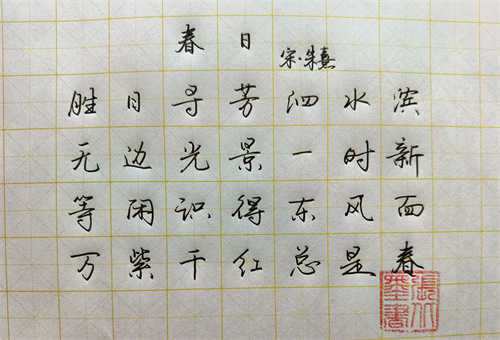 春日
宋·朱熹
胜日寻芳泗水滨
无边光景一时新
等闲识得东风面
万紫千红总是春